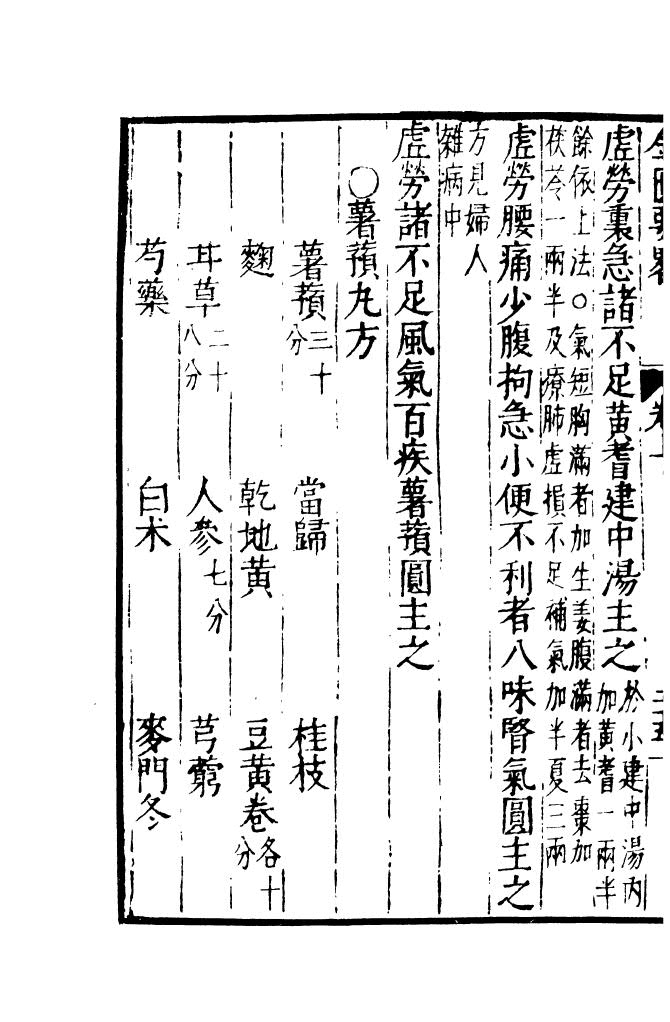 虛勞裏急諸不足黃耆建中湯主之於小建中湯內
加黃耆一兩半
餘依上法○氣短胸滿者加生姜腹滿者去棗加
茯苓一兩半及療肺虛損不足補氣加半夏三兩
虛勞腰痛少腹拘急小便不利者八味腎氣圓主之
方見婦人
雜病中
虛勞諸不足風氣百疾薯蕷圓主之
○薯蕷丸方
薯蕷三十分 當歸 桂枝
麴 乾地黃 豆黃卷各十分
甘草二十八分 人參七分 芎藭
芍藥 白术 麥門冬